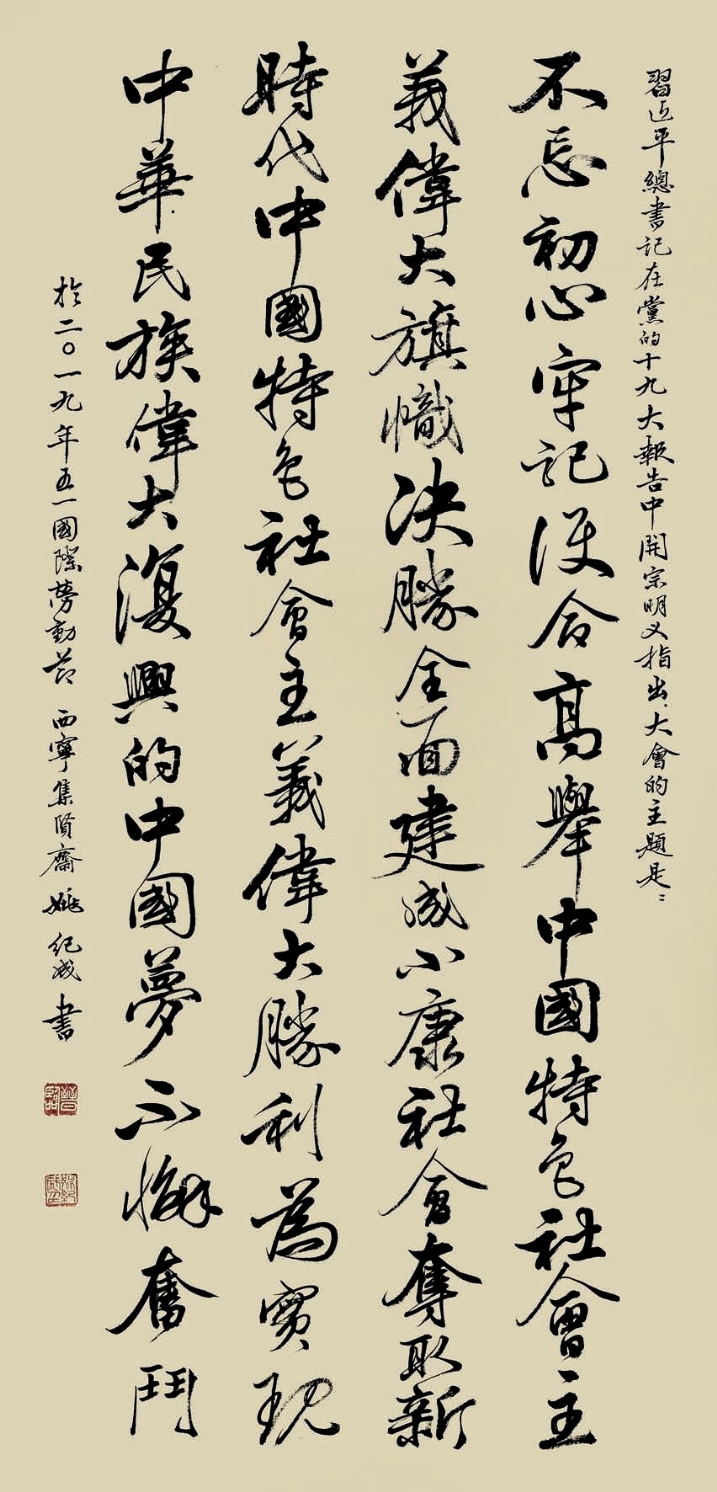 習近平總書記在黨的十九大報告中開宗明义指出、大會的主題是：
不忘初心牢記使命高舉中國特色社會主
義偉大旗幟决勝全面建成小康社會奪取新
時代中國特色社會主義偉大勝利為實現
中華民族偉大復興的中國夢不懈奮鬥
於二〇一九年五一國際勞動節 西寧集賢齋 姚紀成書